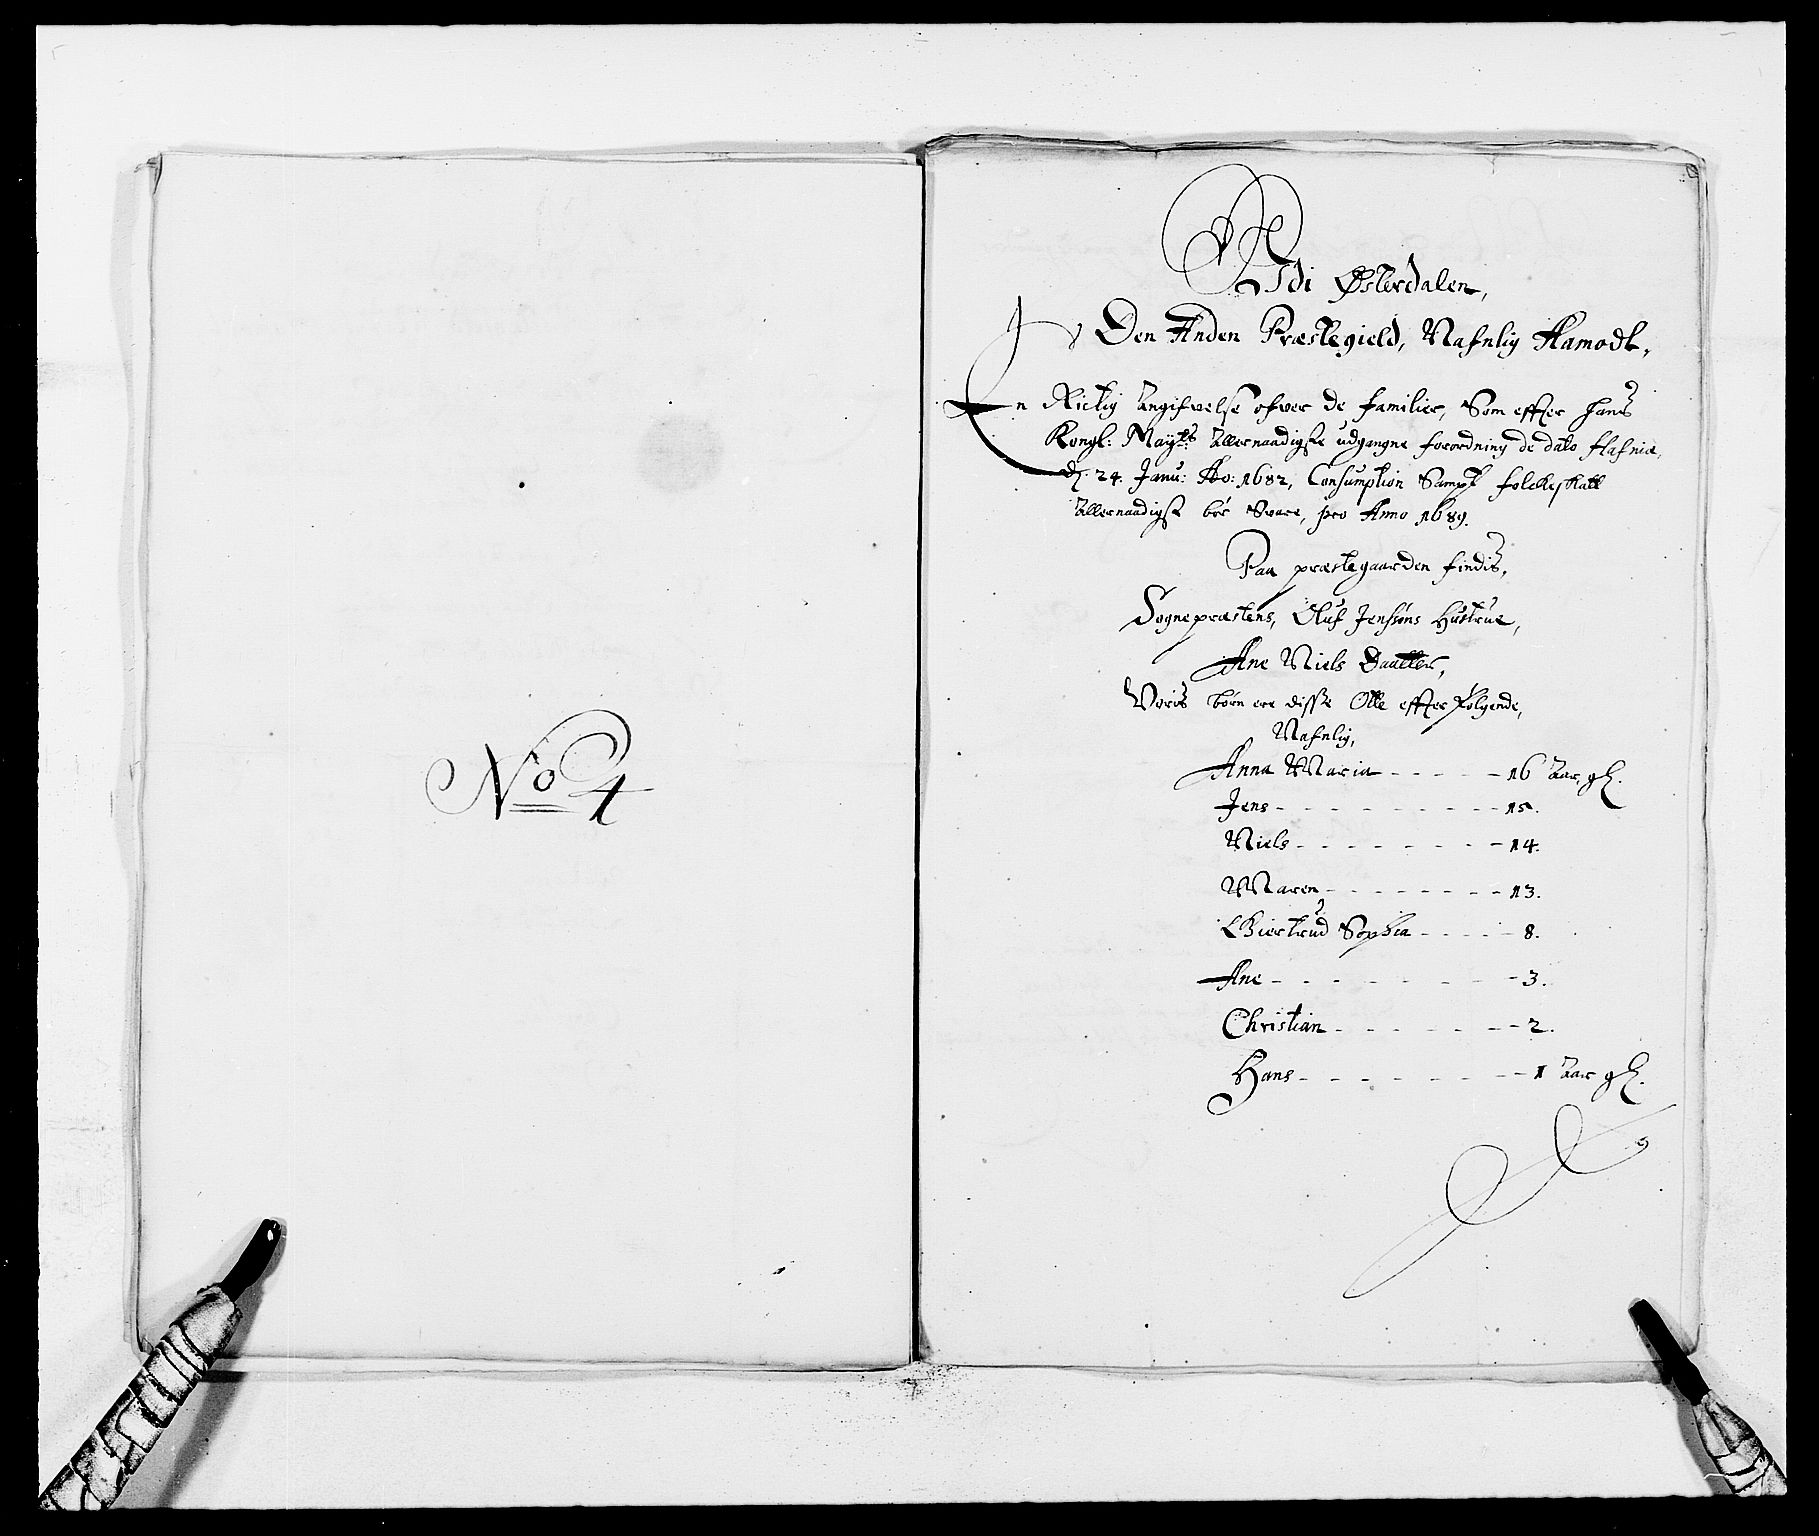 No 4
Udi Østerdalen,
Den Anden Præstegield, Nafnlig Aamodt,
En Rictig Angifvelse ofver de familier, Som effter Hans
Kongl: Mayts: Allernaadigste udgangne forordning de dato Hafniæ,
d. 24. Janu: Ao: 1682, Consumption Sampt folckeskatt
Allernaadigst bør Svare, pro Anno 1689.
Paa præstegaarden findis,
Sognepræstens, Oluf Jenssøns Hustrue,
Ane Niels Daatter,
Voris børn ere disse Otte effterfølgende,
Nafnlig,
Anna Maria - - - - - 16 Aar, gl.
Jens - - - - - - - - - 15.
Niels - - - - - - - - 14.
Maren - - - - - - - - 13.
Giertrud Sophia - - - - - 8.
Ane - - - - - - - - 3.
Christian - - - - - - - 2.
Hans - - - - - - - - 1 Aar gl.